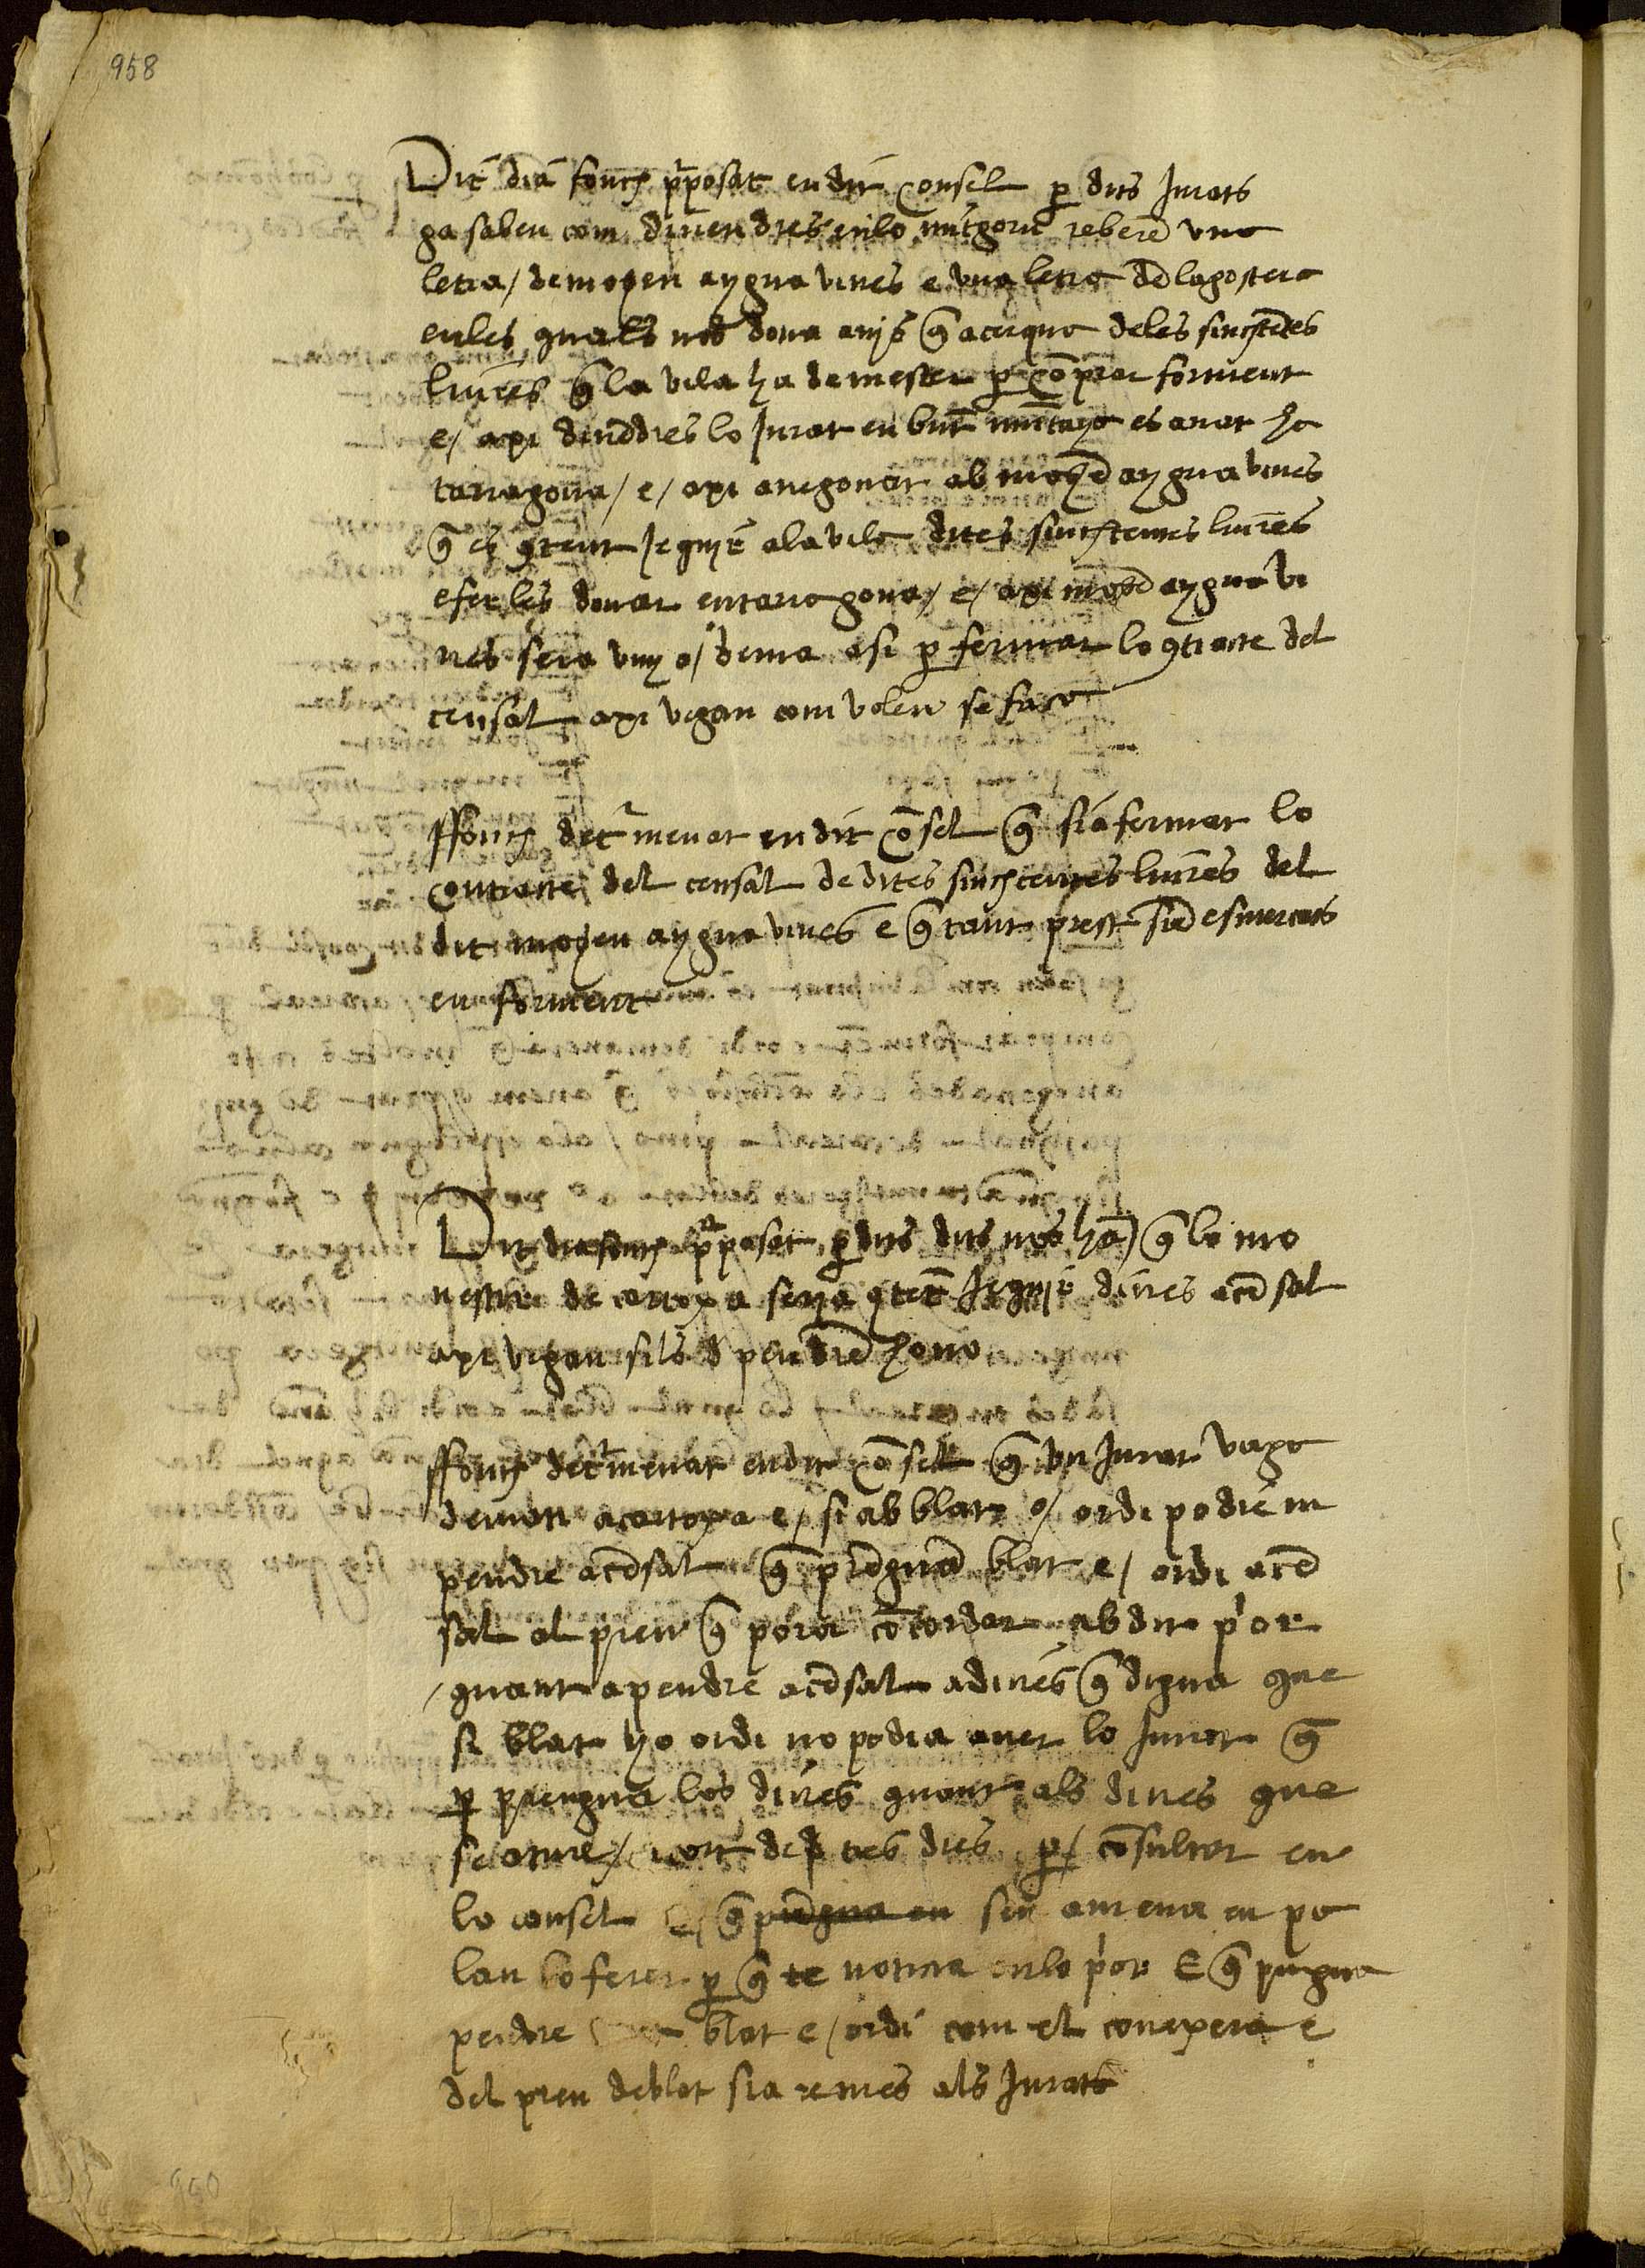 958
Dit dia fonch pposat en dit consel p dits Jurats
ga saben com divendres en lo mitgorn reberé una
letra / de mossen aygua vives e una letra de lagostera
en les quals nos dona avis q̃ acerqua de les sinchcẽtes
liures q̃ la vila ha de mester p cõprar forment
e / axi divẽdres lo Jurat en es anat ha
tarragona / e / axi a negociat ab mossẽ aygua vives
q̃ es cõtent seguir a la vila dites sinchcentes liures
e fer les donar en tarragona / e / axi mossẽ aygua vi
ves sera vuy o / dema asi p fermar lo cõtracte del
censal axi vegan com volen se faça
ffonch detminat en dit cõsel q̃ sia fermat lo
contracte del censal de dites sinchcentes liures del
dit mossen aygua vives e q̃ tant prest siẽ esmersats
en forment
Dit dia fonch pposat p dits dits nos ha q̃ lo mo
nestir de cartoxa seria cõtẽt seguir dines a cẽsal
axi vegan sils pendrẽ ho no
ffonch detminat en dit cõsell q̃ un Jurat vaxa
demati a cartoxa e / si ab blat o / ordi podiẽ m
pendre a cẽsal q̃ prẽgua blat e / ordi a cẽ
sal al preu q̃ pora cõcordar ab dit p̃or
quant a pendre a cẽsal a dines q̃ digua que
si blat ho ordi no podia aver lo Jurat q̃
p prengua los dines quant als dines que
se ature / tres dies p / cõsultar en
lo consel E / q̃ prẽgua en sen amena en pa
lau lo ferer p q̃ te noticia en lo p̃or E q̃ prengua
pendre blat e / ordi com el conexera e
del preu de blat sia remes als Jurats
950